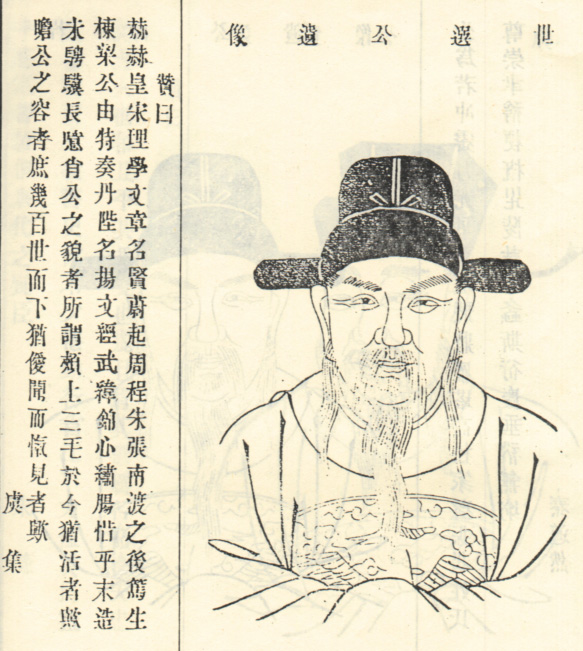 世選公遺像
贊曰
赫赫皇宋理學文章名賢蔚起周程朱張南渡之後篤生
棟梁公由特奏丹陛名揚文經武緯錦心繡腸惜乎末造
未騁驥長噫肖公之貌者所謂頰上三毛於今猶活者歟
瞻公之容者庶幾百世而下猶僾聞而愾見者歟
虞集